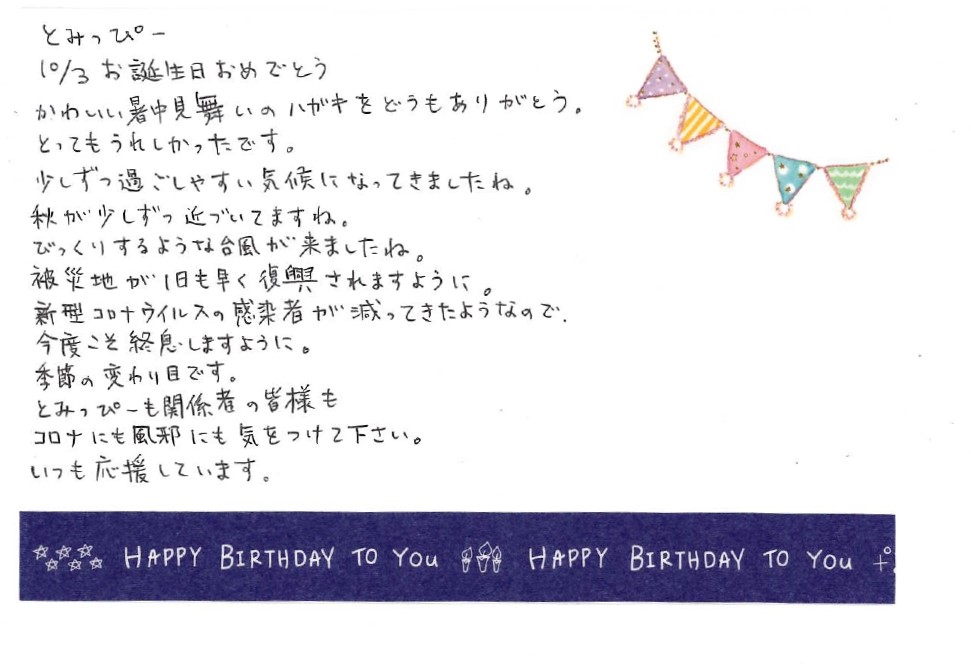 とみっぴー
10/3 お誕生日おめでとう
かわいい暑中見舞いのハガキをどうもありがとう。
とってもうれしかったです。
少しずつ過ごしやすい気候になってきましたね。
秋が少しずつ近づいてますね。
びっくりするような台風が来ましたね。
被災地が1日も早く復興されますように。
新型コロナウイルスの感染者が減ってきたようなので、
今度こそ終息しますように。
季節の変わり目です。
とみっぴーも関係者の皆様も
コロナにも風邪にも気をつけて下さい。
いつも応援しています。
HAPPY BIRTHDAY TO YOU HAPPY BIRTHDAY TO YOU